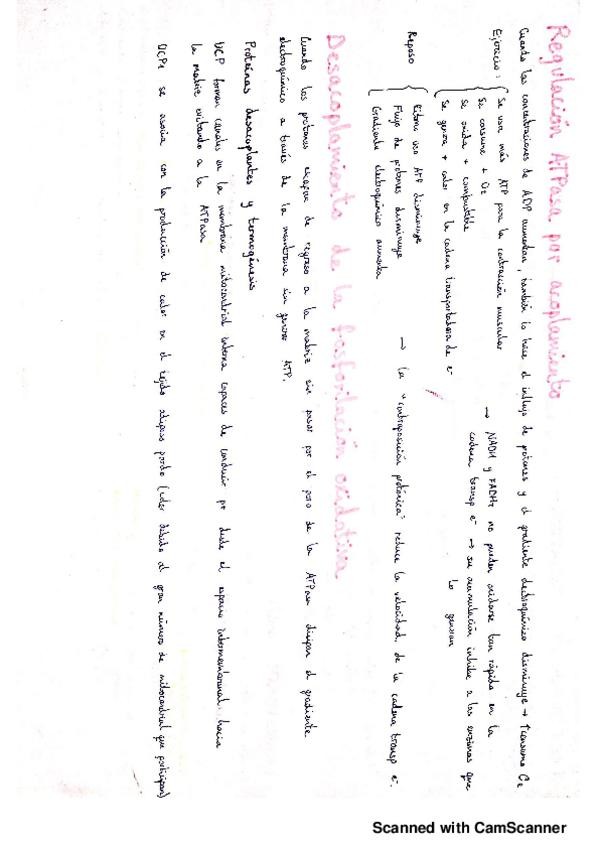 Regulación ATPasa por acoplamiento
Cuando las concentraciones de ADP aumentan, también lo hace el influjo de protones y el gradiente electroquímico disminuye → ↑ consumo O2
Ejercicio: Se usa más ATP para la contracción muscular
Se consume + O2
Se oxida + combustible
Se genera + calor en la cadena transportadora de e-
→ NADH y FADH2 no pueden oxidarse tan rápido en la
cadena transp e- → su acumulación inhibe a las enzimas que
lo generan
Reposo Ritmo uso ATP disminuye
Flujo de protones disminuye
Gradiente electroquímico aumenta
→ La "contraposición protónica" reduce la velocidad de la cadena transp e-.
Desacoplamiento de la fosforilación oxidativa
Cuando los protones escapan de regreso a la matriz sin pasar por el poro de la ATPasa disipan el gradiente
electroquímico a través de la membrana sin generar ATP.
Proteínas desacoplantes y termogénesis
UCP forman canales en la membrana mitocondrial interna capaces de conducir desde el espacio intermembranal hacia
la matriz evitando a la ATPasa
UCP1 se asocia con la producción de calor en el tejido adiposo pardo (color debido al gran número de mitocondrial que participan)
Scanned with CamScanner